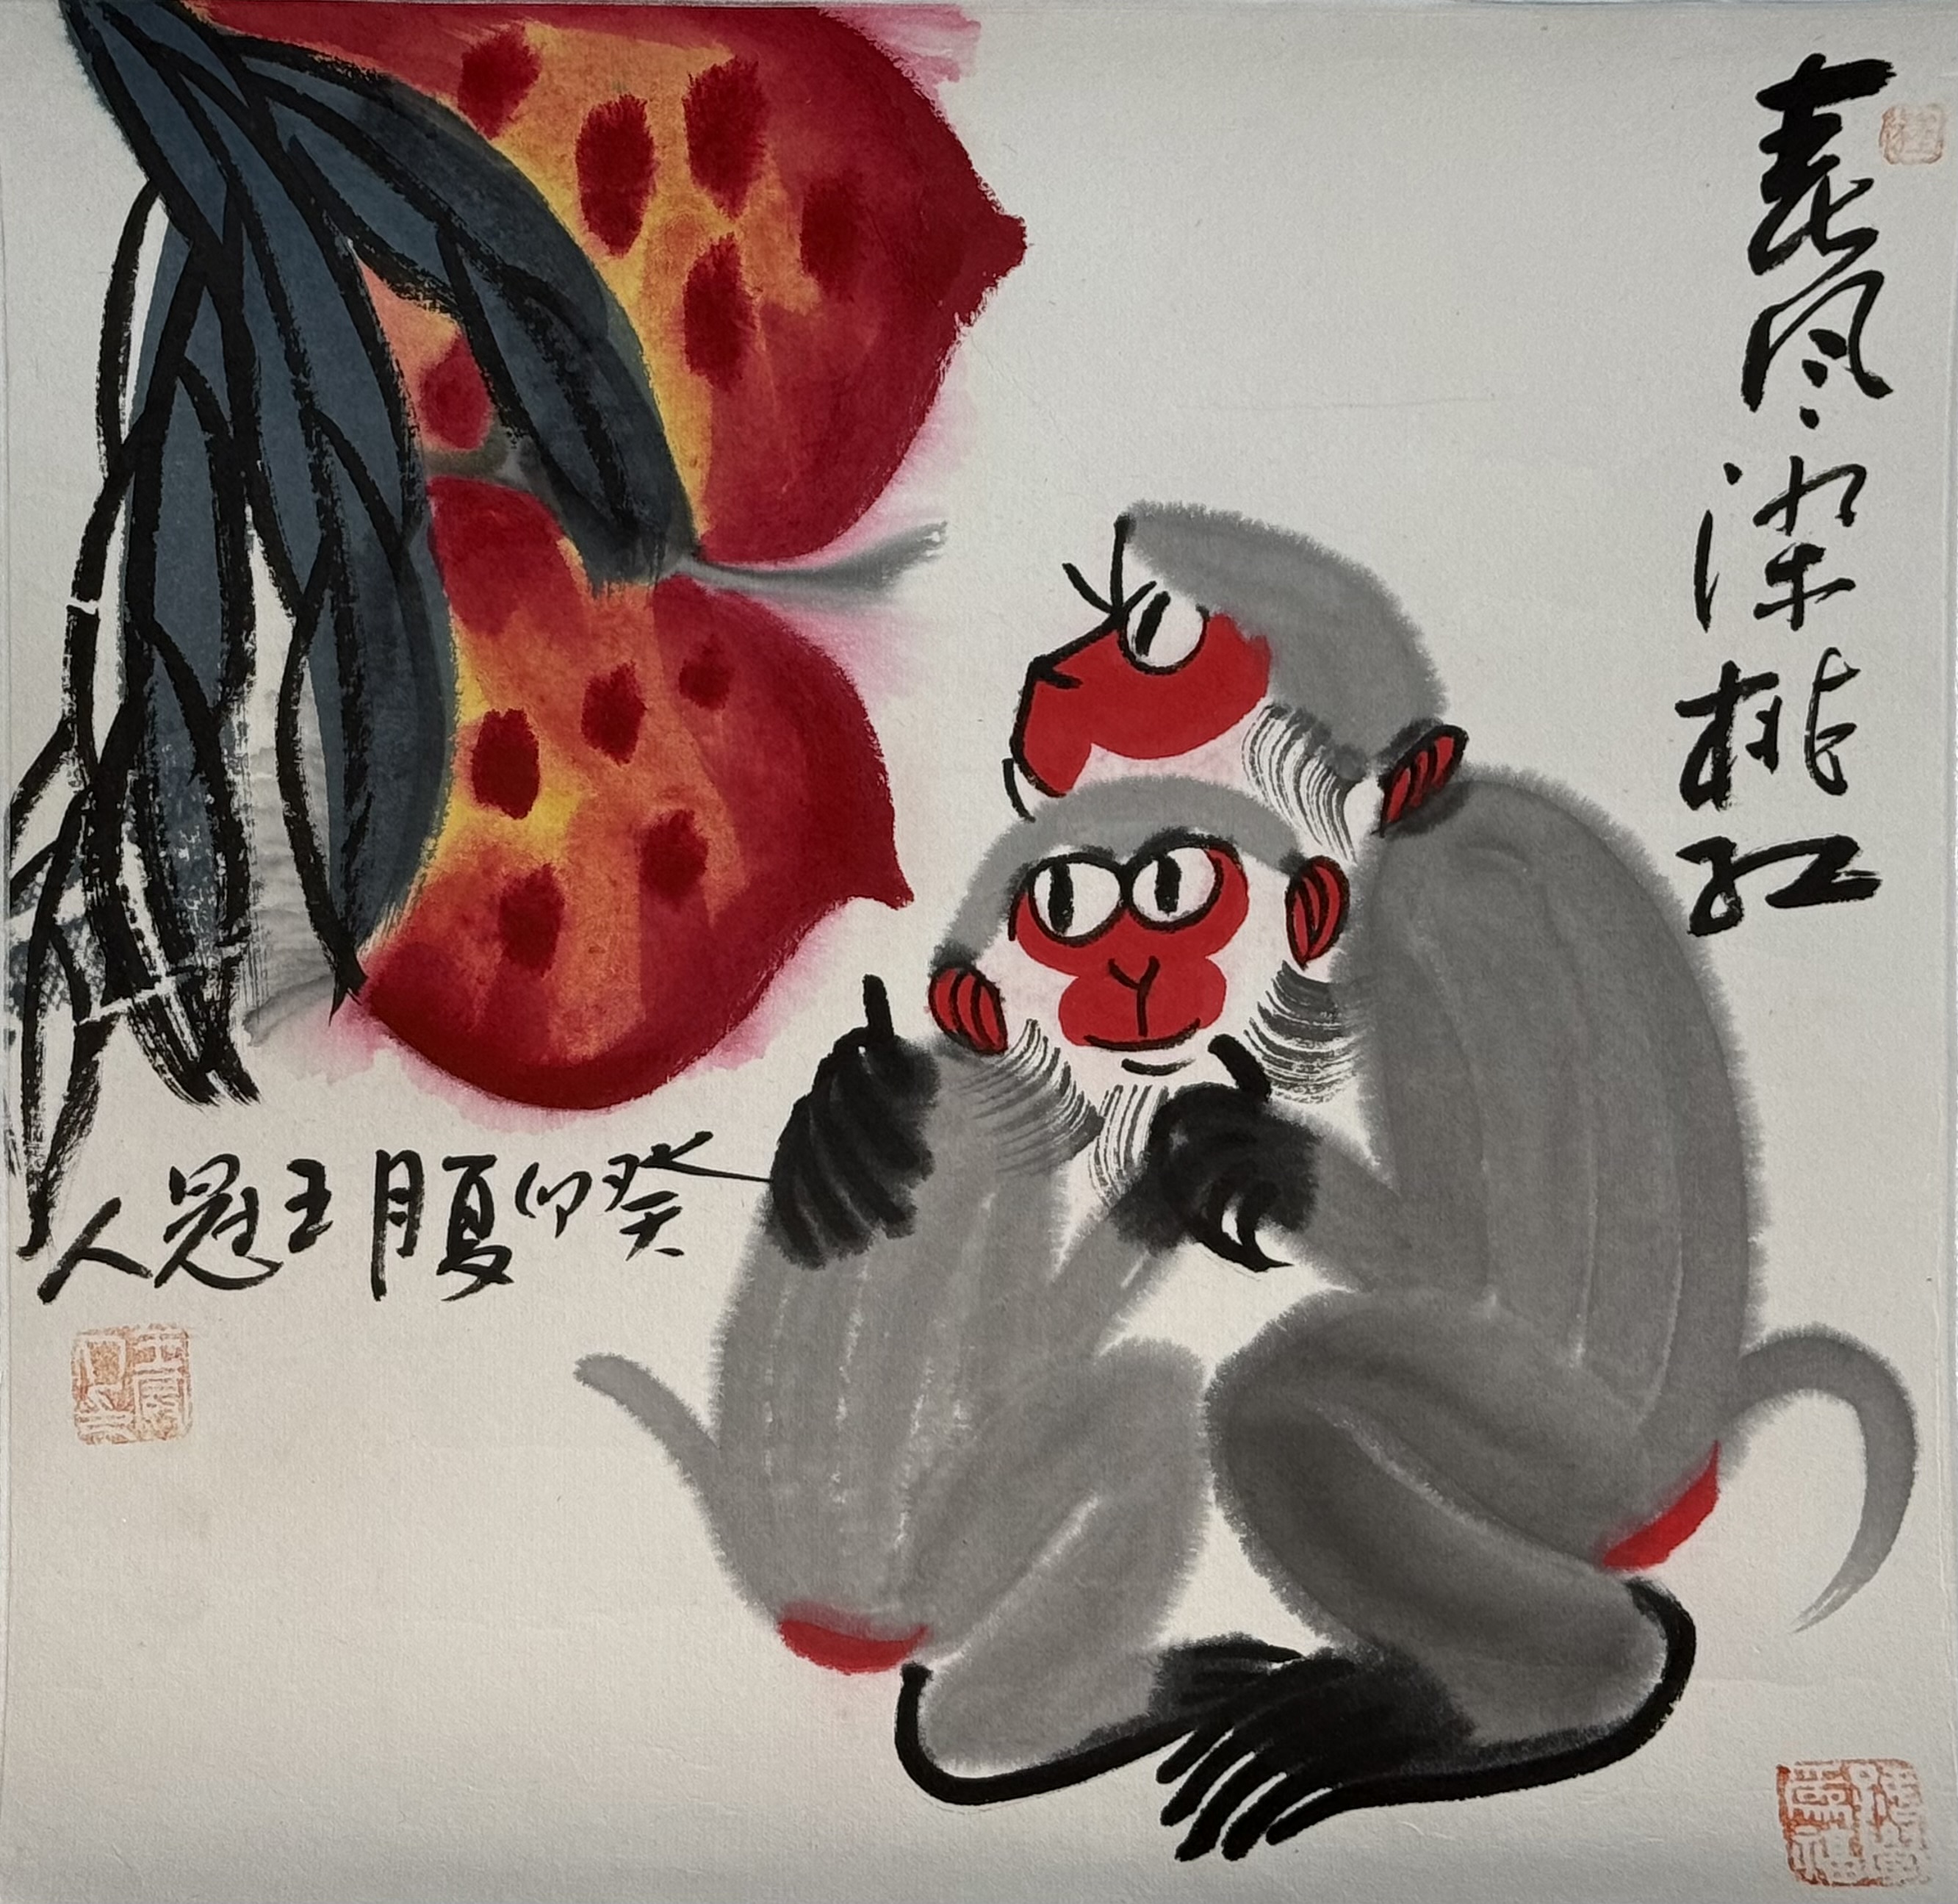 春风染桃红
癸卯夏月王冠人